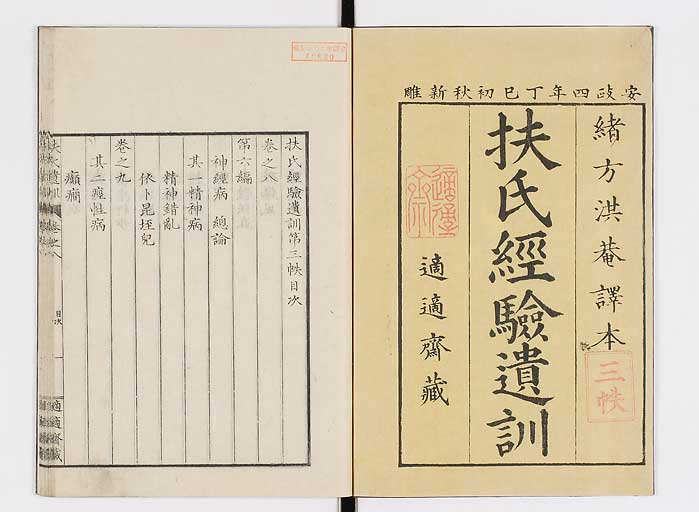 安政四年丁巳初秋新雕
緒方洪菴譯本
三帙
扶氏經驗遺訓
適適齋藏
扶氏經驗遺訓第三帙目次
卷之八
第六編
神經病 總論
其一精神病
精神錯亂
依卜昆垤兒
卷之九
其二痙性病
癲癇
目次
一
適適齋藏